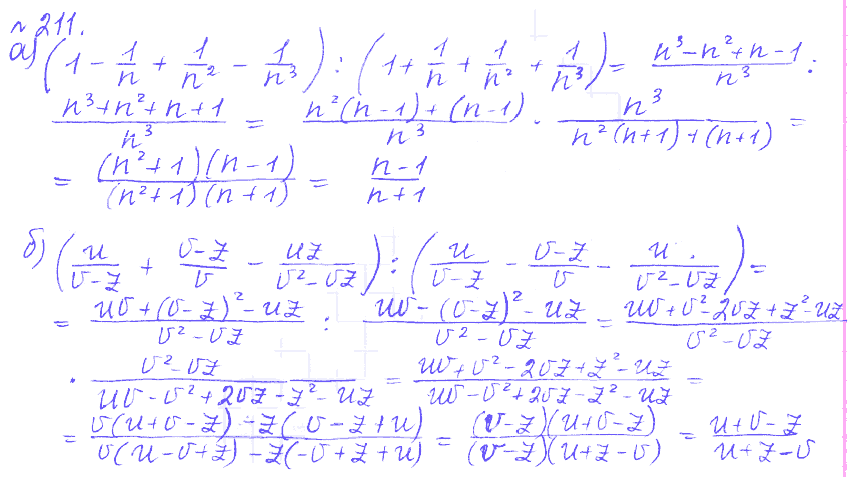 № 211.
а) (1 - 1/n + 1/n² - 1/n³) : (1 + 1/n + 1/n² + 1/n³) = (n³ - n² + n - 1)/n³ :
(n³ + n² + n + 1)/n³ = (n²(n-1) + (n-1))/n³ · n³/(n²(n+1) + (n+1)) =
= ((n²+1)(n-1))/((n²+1)(n+1)) = (n-1)/(n+1)
б) (u/(v-z) + (v-z)/v - uz/(v²-vz)) : (u/(v-z) - (v-z)/v - u/(v²-vz)) =
= (uv + (v-z)² - uz)/(v²-vz) : (uv - (v-z)² - uz)/(v²-vz) = (uv + v² - 2vz + z² - uz)/(v²-vz)
· (v²-vz)/(uv - v² + 2vz - z² - uz) = (uv + v² - 2vz + z² - uz)/(uv - v² + 2vz - z² - uz) =
= (v(u+v-z) - z(v-z+u))/(v(u-v+z) - z(-v+z+u)) = ((v-z)(u+v-z))/((v-z)(u+z-v)) = (u+v-z)/(u+z-v)